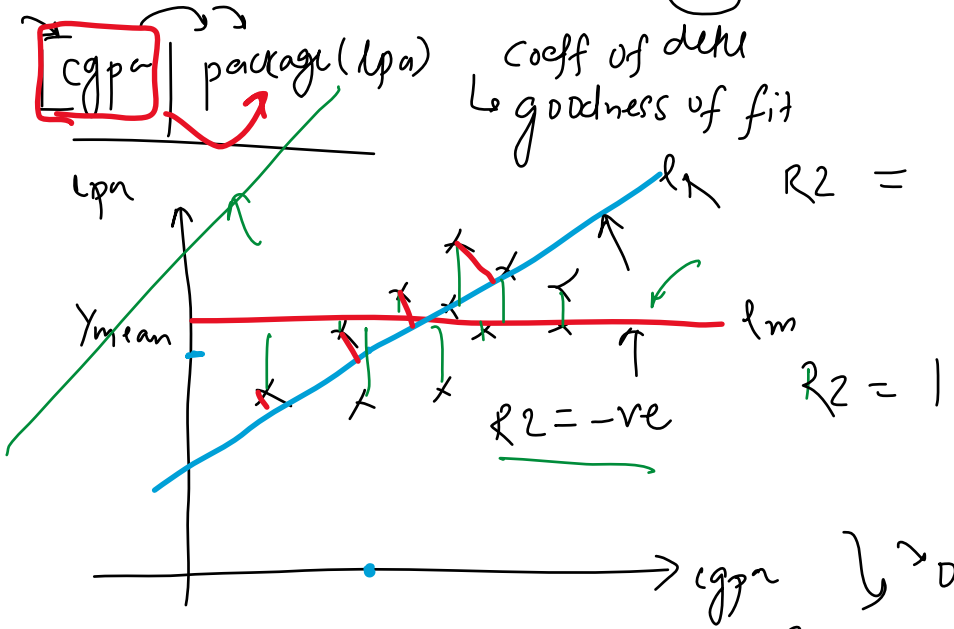 cgpa package(lpa)
coeff of dete
goodness of fit
lpa
R2 =
Ymean
lm
R2 = 1
R2 = -ve
cgpa